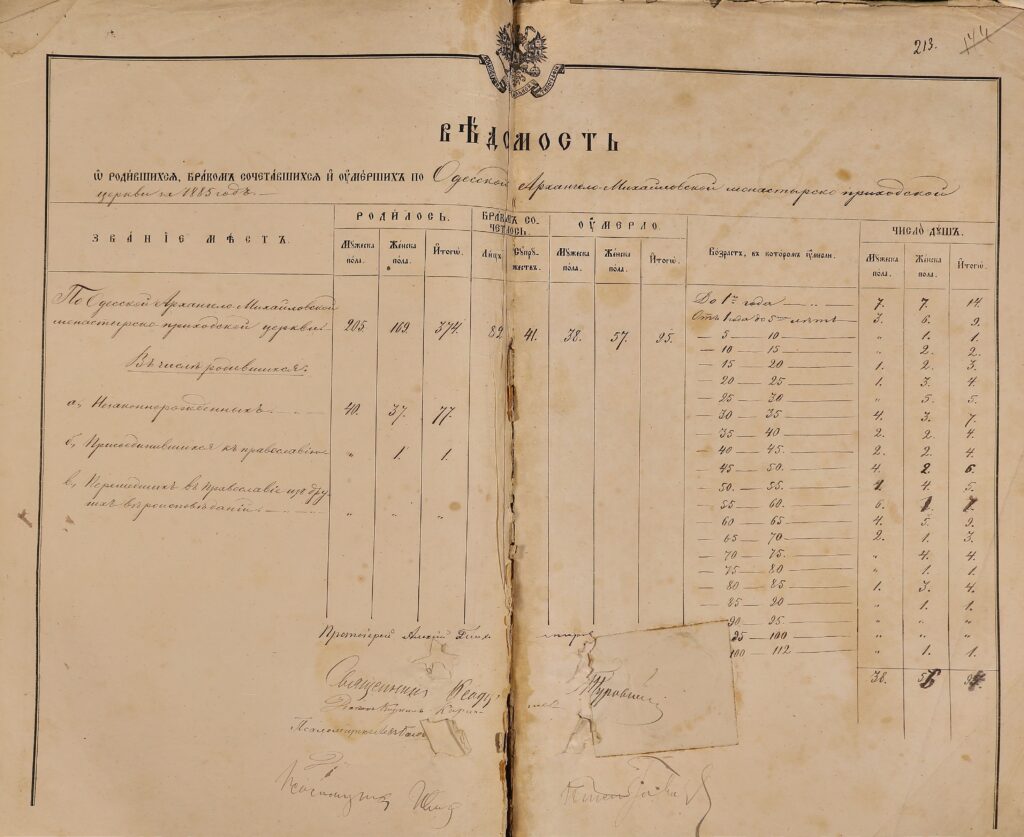 213.
144
ВѢДОМОСТЬ
Ѡ РОДИВШИХСЯ, БРАКОМЪ СОЧЕТАВШИХСЯ И ОУМЕРШИХЪ ПО Одесской Архангело-Михайловской монастырско приходской
церкви за 1885 годъ.
ЗВАНІЕ МѢСТЪ.
РОДИЛОСЬ.
БРАКОМЪ СОЧЕТАЛОСЬ.
ОУМЕРЛО.
Возрастъ, въ которомъ оумерли.
ЧИСЛО ДУШЪ.
Мꙋжеска пола. Женска пола. Итогѡ.
Лицъ. Сꙋпрꙋжествъ.
Мꙋжеска пола. Женска пола. Итогѡ.
Мꙋжеска пола. Женска пола. Итогѡ.
По Одесской Архангело-Михайловской
монастырско приходской церкви 205 169. 374. 82 41. 38. 57. 95.
Въ числѣ родившихся:
а, Незаконнорожденныхъ 40. 37. 77.
б, Присоединившихся къ православію " 1. 1.
в, Перешедшихъ въ Православіе изъ дру-
гихъ вѣроисповѣданій " " "
До 1го года — 7. 7. 14.
Отъ 1 года до 5 лѣтъ 3. 6. 9.
— 5 — 10 — " 1. 1.
— 10 — 15 — " 2. 2.
— 15 — 20 — 1. 2. 3.
— 20 — 25 — 1. 3. 4.
— 25 — 30 — " 5. 5.
— 30 — 35 — 4. 3. 7.
— 35 — 40 — 2. 2. 4.
— 40 — 45. — 2. 2. 4.
— 45 — 50. — 4. 2. 6.
— 50. — 55. — 4. 5.
— 55 — 60. — 6. 1. 7.
— 60 — 65 — 4. 5. 9.
— 65 — 70 — 2. 1. 3.
— 70 — 75. — " 4. 4.
— 75 — 80 — " 1. 1.
— 80 — 85 — 1. 3. 4.
— 85 — 90 — " 1. 1.
90 — 95 — " " "
95 — 100 — " " "
100 — 112 — " 1. 1.
38. 56
Протоіерей Алексій
Священникъ
Журовскій